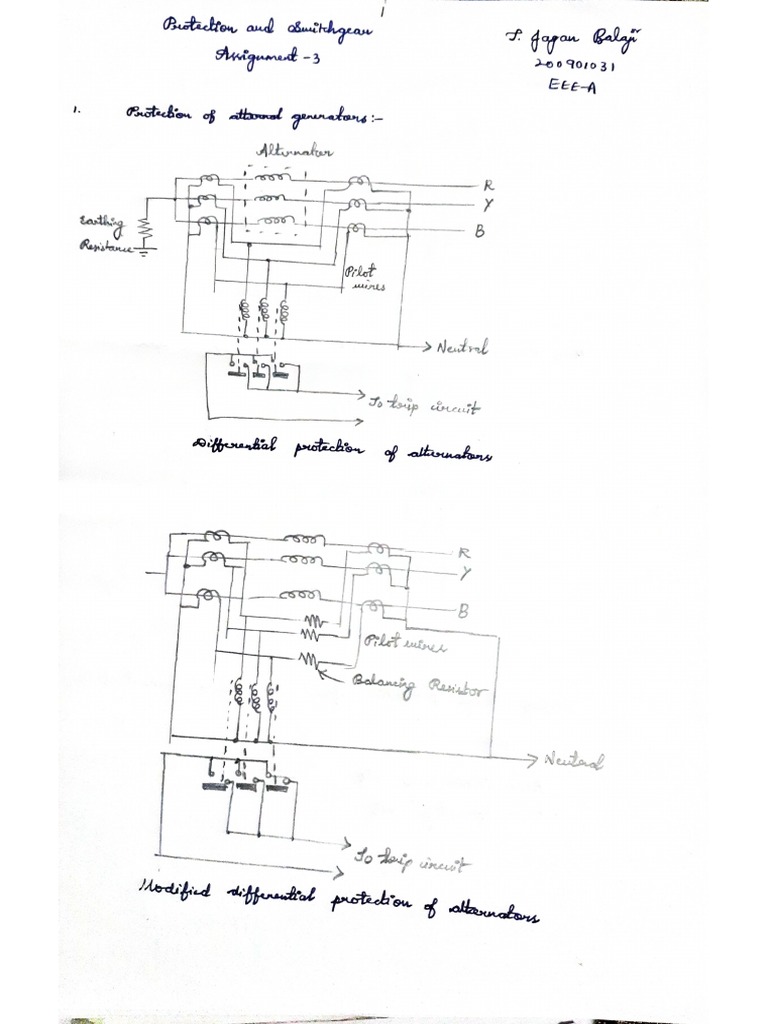 1
Protection and Switchgear
Assignment - 3
T. Jagan Balaji
200901031
EEE-A
1. Protection of generators:-
Alternator
R
Y
B
Earthing
Resistance
Pilot
wires
Neutral
To trip circuit
Differential protection of alternators
R
Y
B
Pilot wires
Balancing Resistor
Neutral
To trip circuit
Modified differential protection of alternators